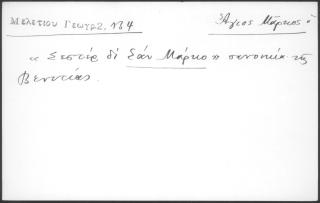 Μελετίου Γεωγρ. 134
Ἅγιος Μάρκος ὁ
« Σεστέρ δι Σάν Μάρκο » συνοικία τῆς
Βενετίας.